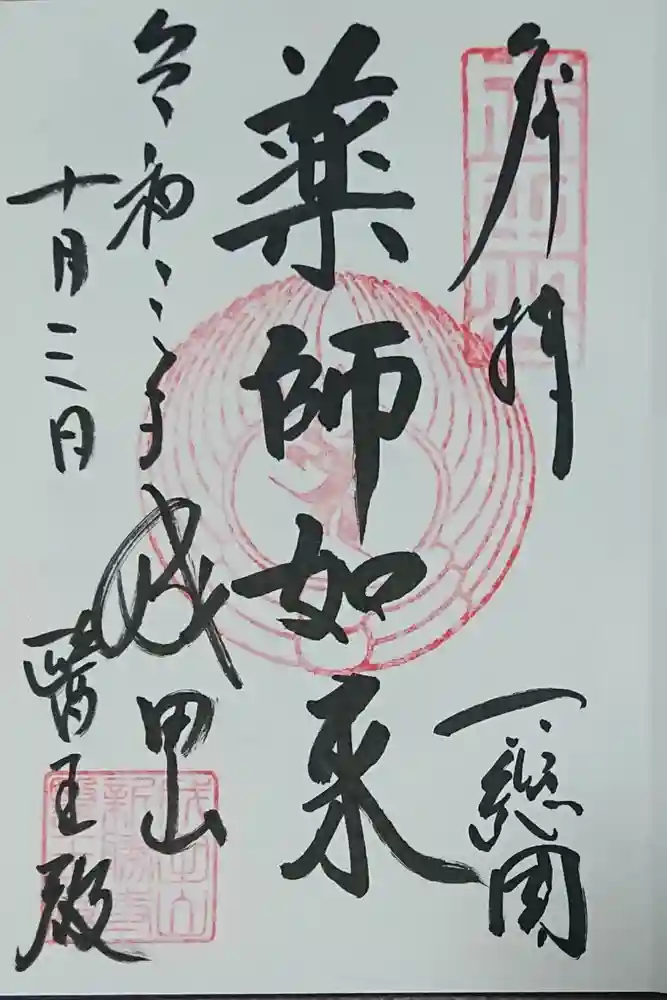 奉拝
下総国
成田山
薬師如来
令和二年
十月三日
成田山
醫王殿
成田山
新勝寺